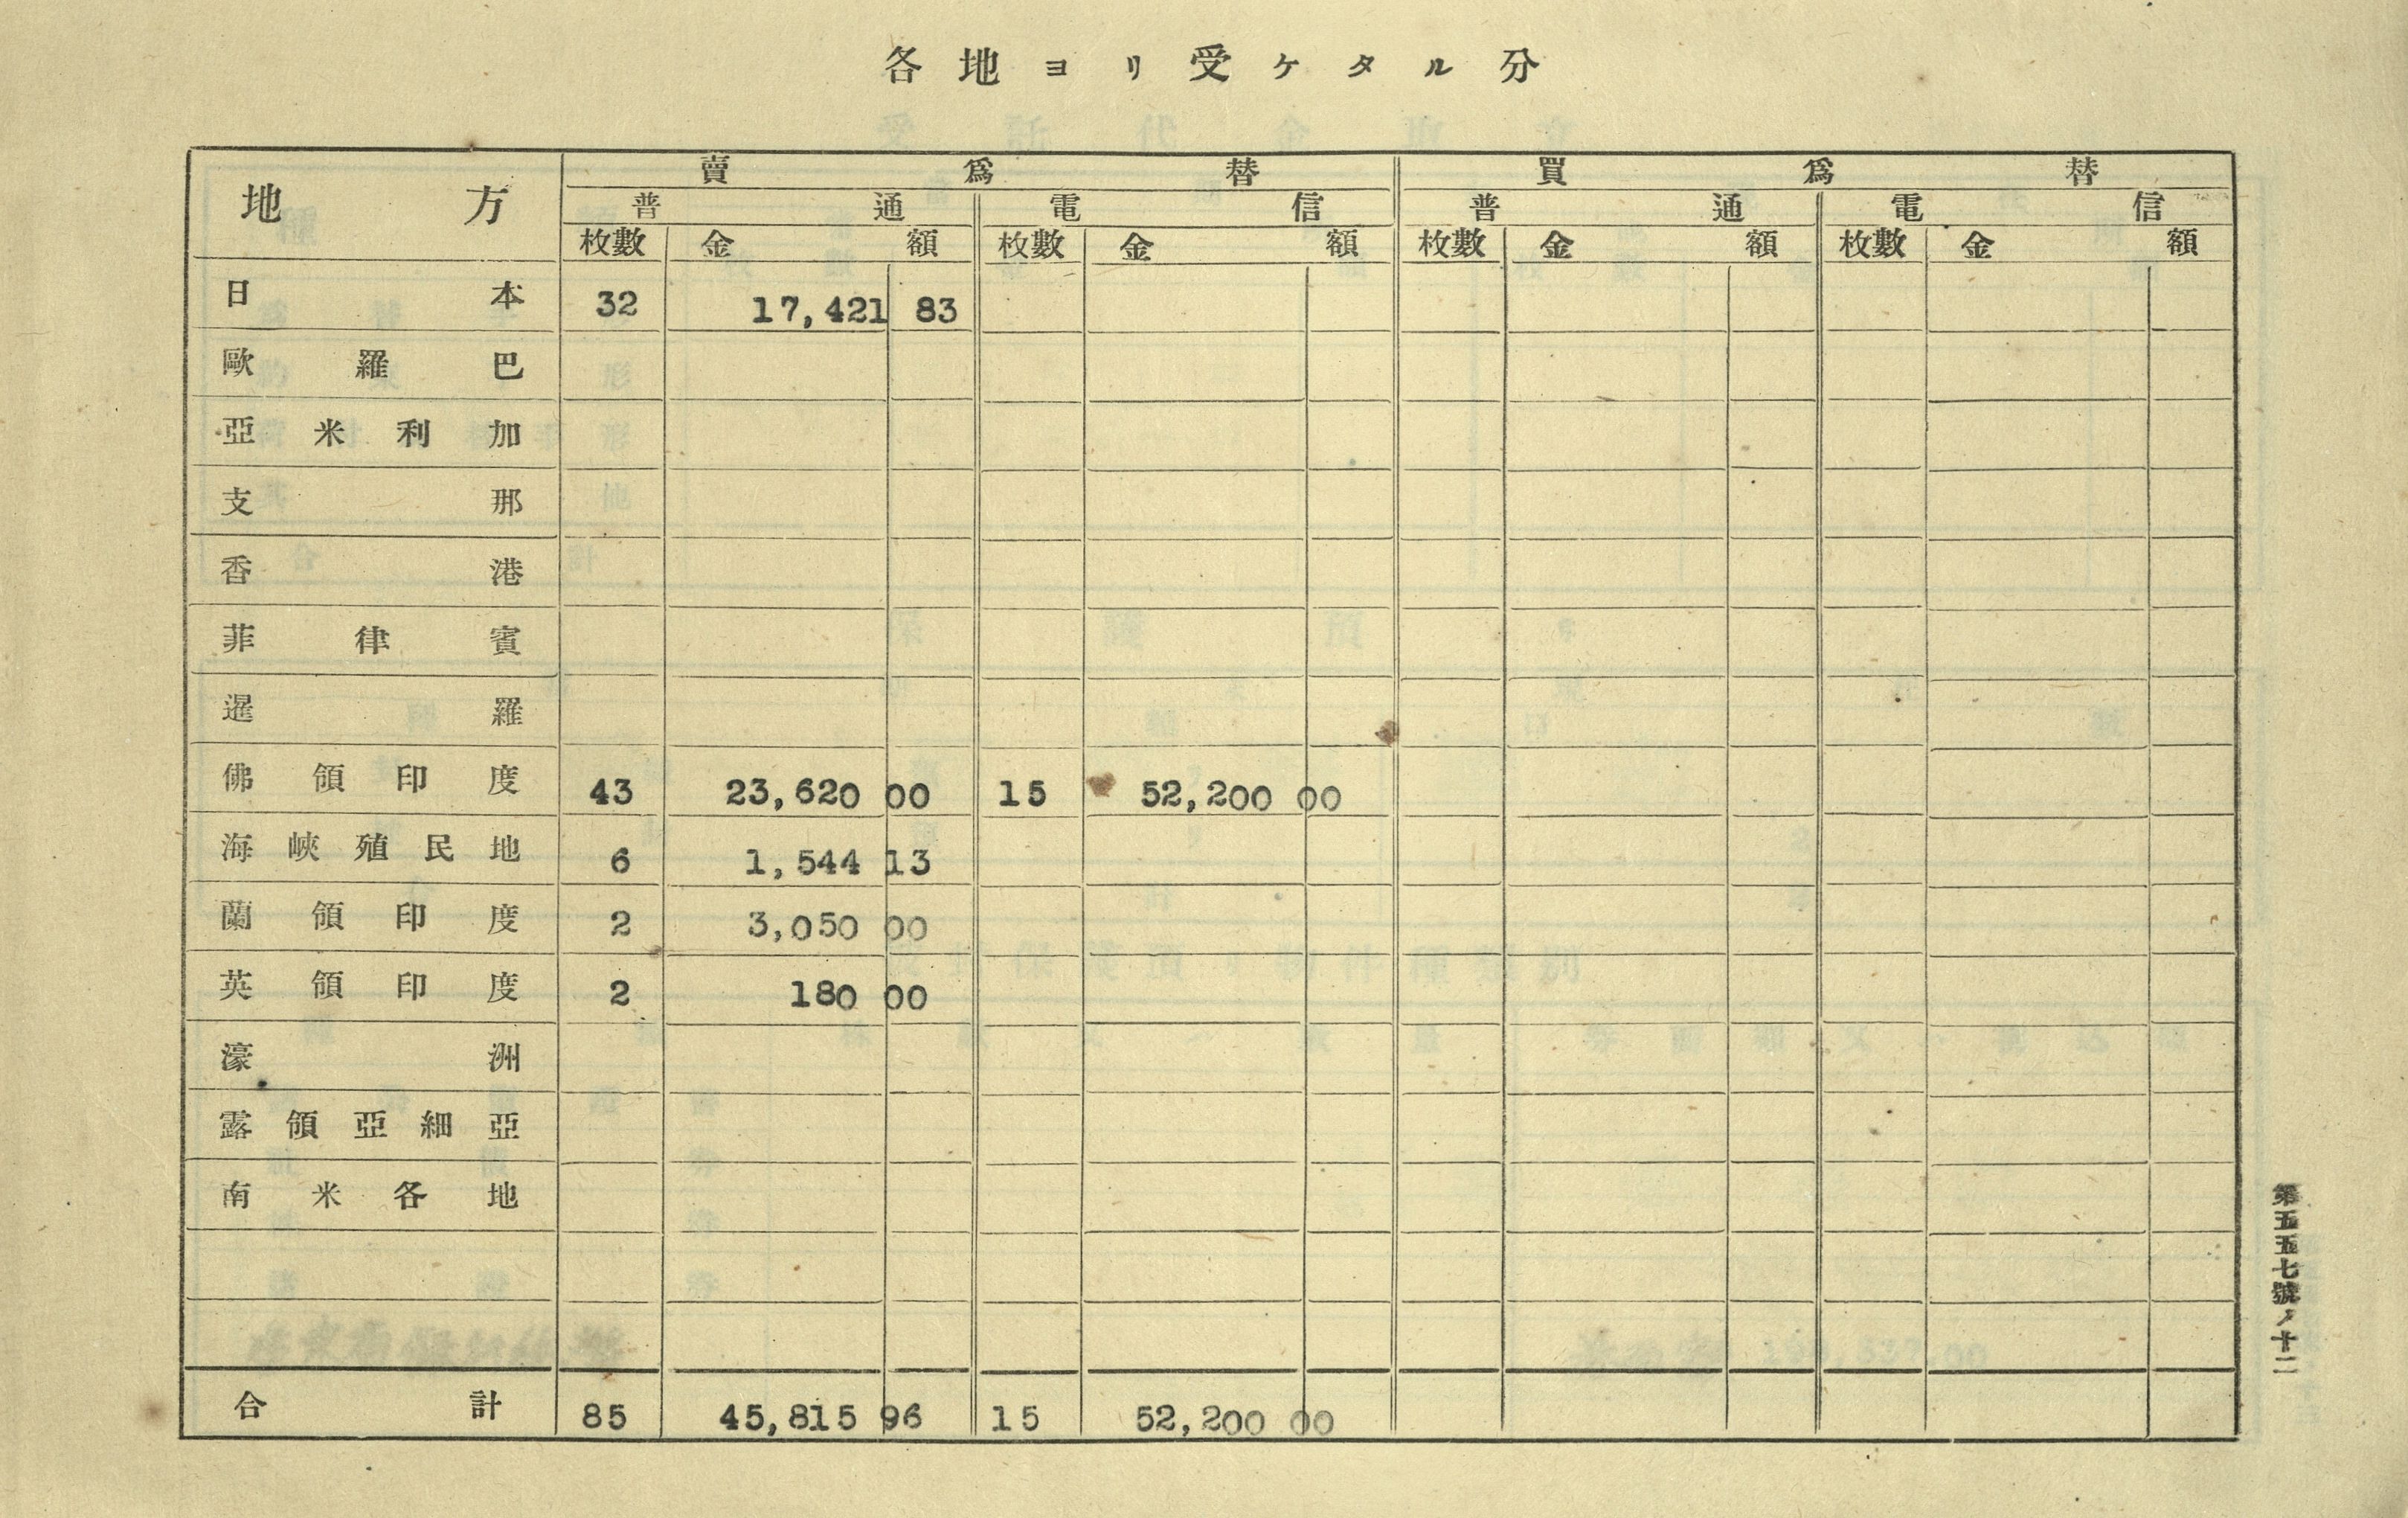 各地ヨリ受ケタル分
地方 賣爲替 買爲替
普通 電信 普通 電信
枚數 金額 枚數 金額 枚數 金額 枚數 金額
日本 32 17,421 83
歐羅巴
亞米利加
支那
香港
菲律賓
暹羅
佛領印度 43 23,620 00 15 52,200 00
海峽殖民地 6 1,544 13
蘭領印度 2 3,050 00
英領印度 2 180 00
濠洲
露領亞細亞
南米各地
合計 85 45,815 96 15 52,200 00
第五五七號ノ十二